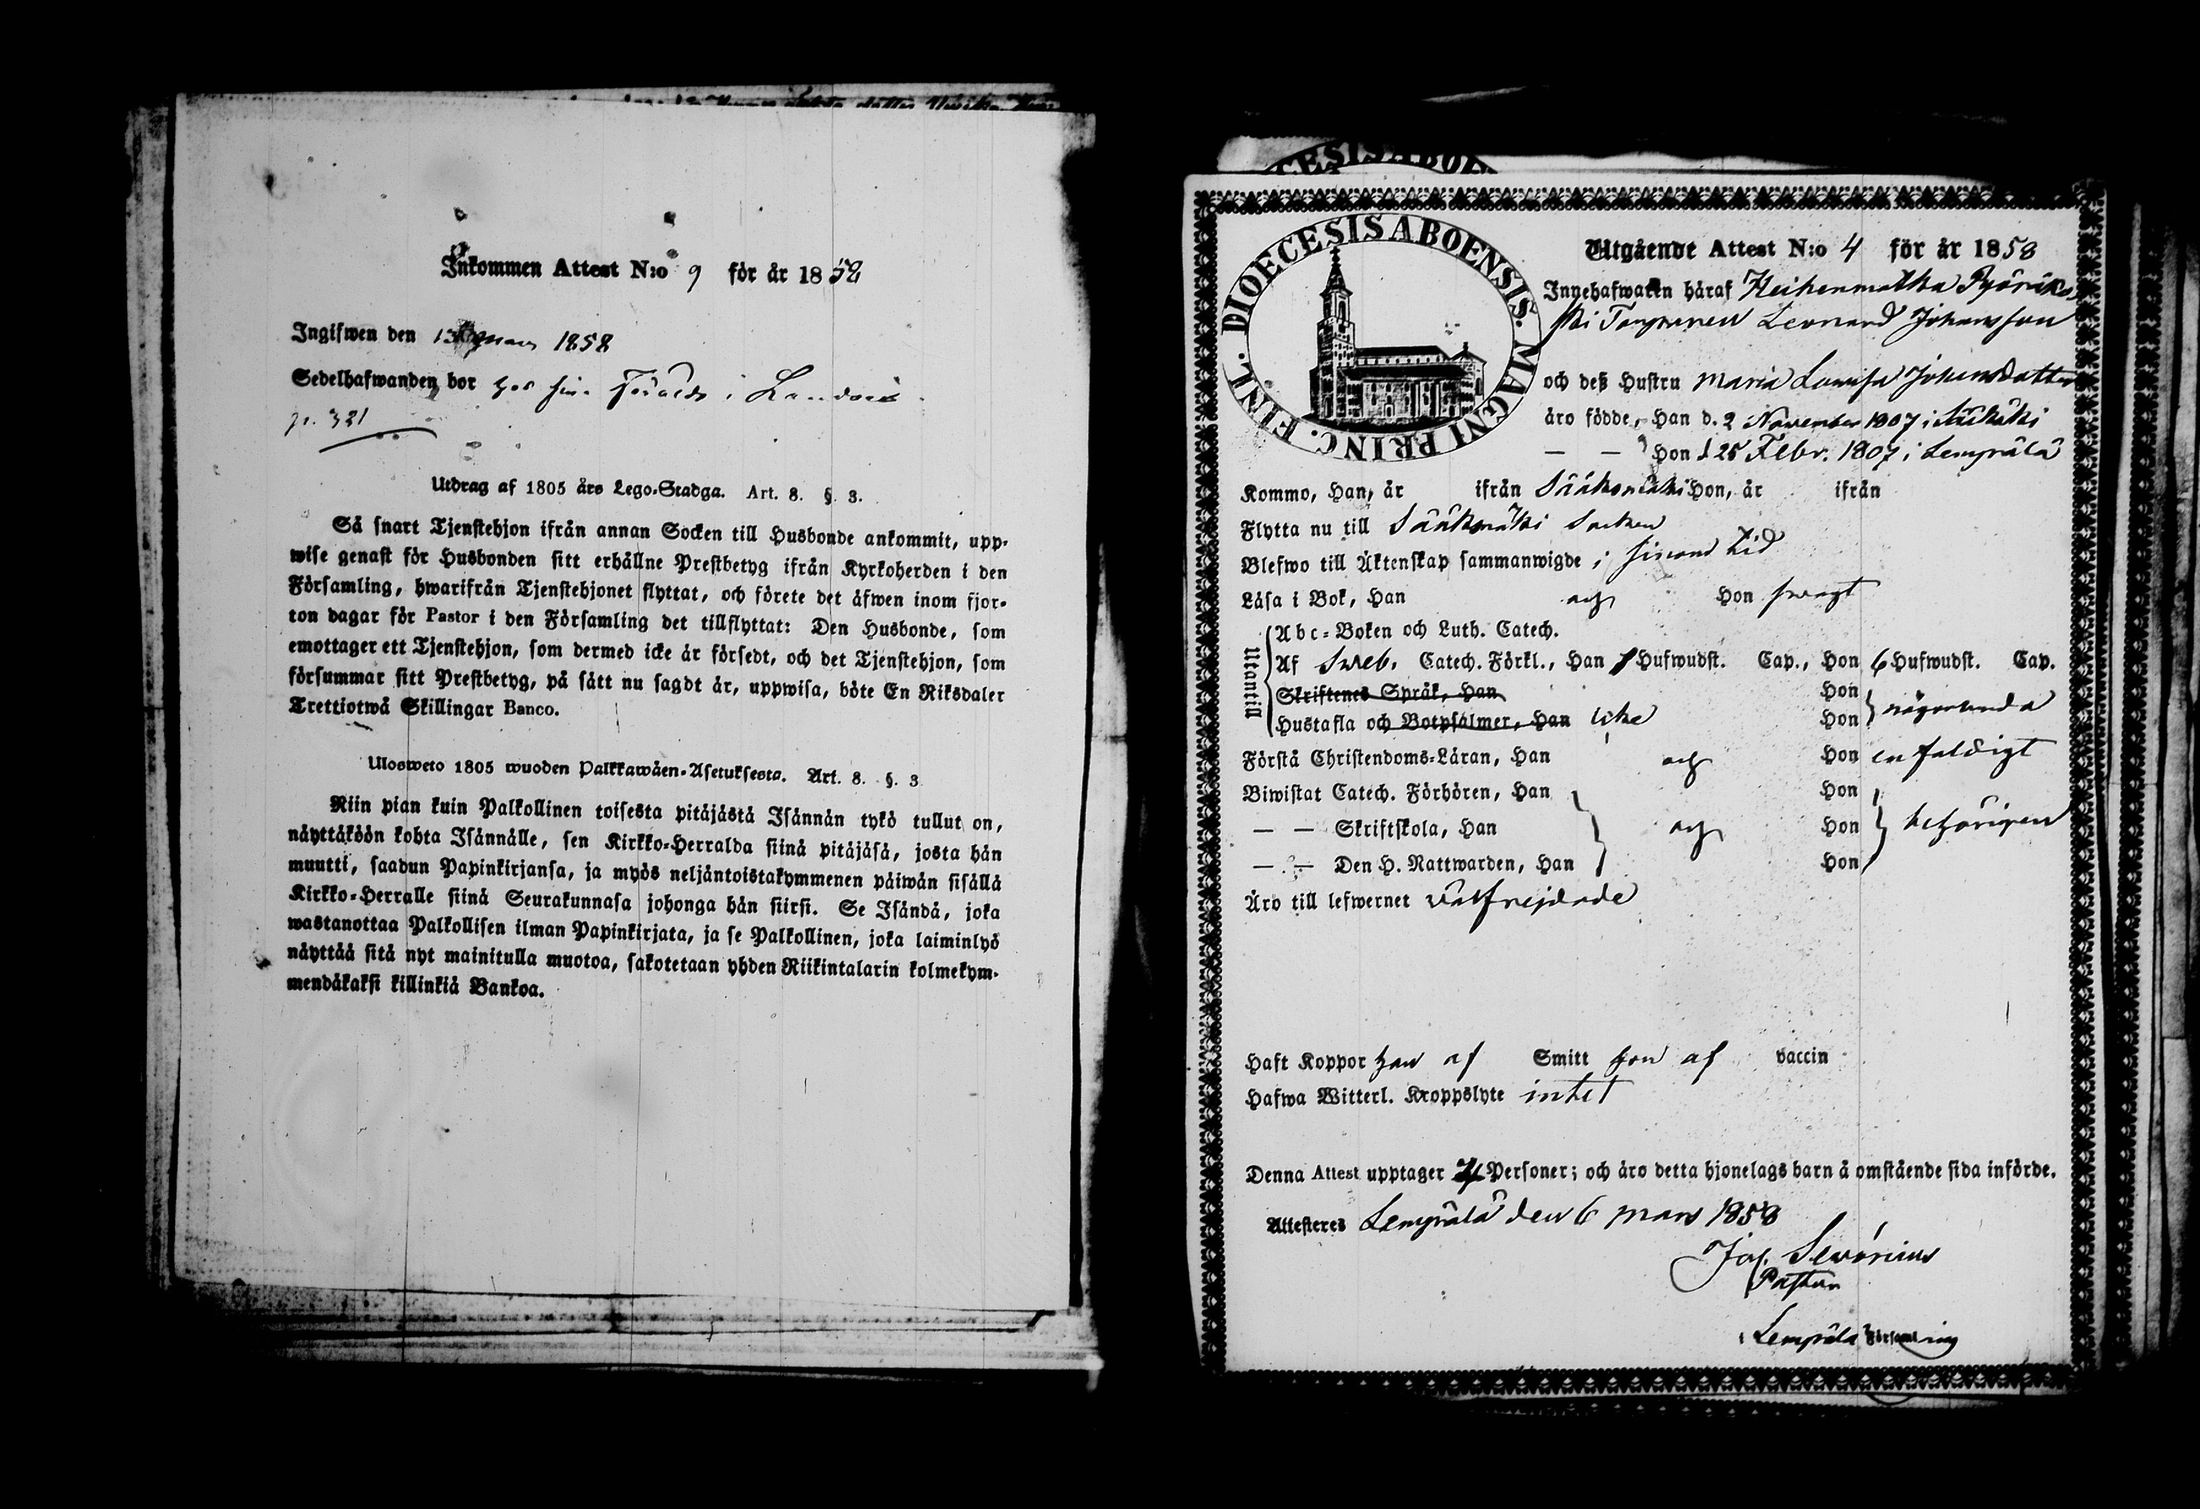 Inkommen Attest N:o 9 för år 1858
Ingifwen den 13 Mars 1858
Sedelhafwanden bor hos sin i
p. 321
Utdrag af 1805 års Lego-Stadga. Art. 8. §. 3.
Så snart Tjenstehjon ifrån annan Socken till Husbonde ankommit, upp-
wise genast för Husbonden sitt erhållne Prestbetyg ifrån Kyrkoherden i den
Församling, hwarifrån Tjenstehjonet flyttat, och förete det äfwen inom fjor-
ton dagar för Pastor i den Församling det tillflyttat: Den Husbonde, som
emottager ett Tjenstehjon, som dermed icke är försedt, och det Tjenstehjon, som
försummar sitt Prestbetyg, på sätt nu sagdt är, uppwisa, böte En Riksdaler
Trettiotwå Skillingar Banco.
Ulosweto 1805 wuoden Palkkawäen-Asetuksesta. Art. 8. §. 3
Niin pian kuin Palkollinen toisesta pitäjästä Isännän tykö tullut on,
näyttäköön kohta Isännälle, sen Kirkko-Herralda siinä pitäjäsä, josta hän
muutti, saadun Papinkirjansa, ja myös neljäntoistakymmenen päiwän sisällä
Kirkko-Herralle siinä Seurakunnasa johonga hän siirsi. Se Isändä, joka
wastanottaa Palkollisen ilman Papinkirjata, ja se Palkollinen, joka laiminlyö
näyttää sitä nyt mainitulla muotoa, sakotetaan yhden Riikintalarin kolmekym-
mendäkaksi killinkiä Bankoa.
DIOECESIS ABOENSIS. MAGNI PRINC. FINL.
Utgående Attest N:o 4 för år 1858
Innehafwaren häraf
Leonard Johansson
och deß Hustru Maria Lowisa Johansdotter
äro födde, Han d. 2 November 1807 i Sääksmäki
— — Hon d 25 Febr. 1807 i Lempäälä
Kommo, Han, år ifrån Sääksmäki Hon, år ifrån
Flytta nu till Sääksmäki Socken
Blefwo till Äktenskap sammanwigde i sinom tid
Läsa i Bok, Han och Hon swagt
Utantill
Abc-Boken och Luth. Catech.
Af Sweb. Catech. Förkl., Han Hufwudst. Cap., Hon 6 Hufwudst. Cap.
Skriftenes Språk, Han Hon
Hustafla och Botpsalmer, Han icke Hon någorlunda
Förstå Christendoms-Läran, Han och Hon enfaldigt
Biwistat Catech. Förhören, Han Hon
— — Skriftskola, Han och Hon behörigen
— — Den H. Nattwarden, Han Hon
Äro till lefwernet wälfrejdade
Haft Koppor han af Smitt hon af vaccin
Hafwa Witterl. Kroppslyte intet
Denna Attest upptager Personer; och äro detta hjonelags barn å omstående sida införde.
Attesteras Lempäälä den 6 Mars 1858
Jos. Sevónius
Pastor
i Lempäälä Församling